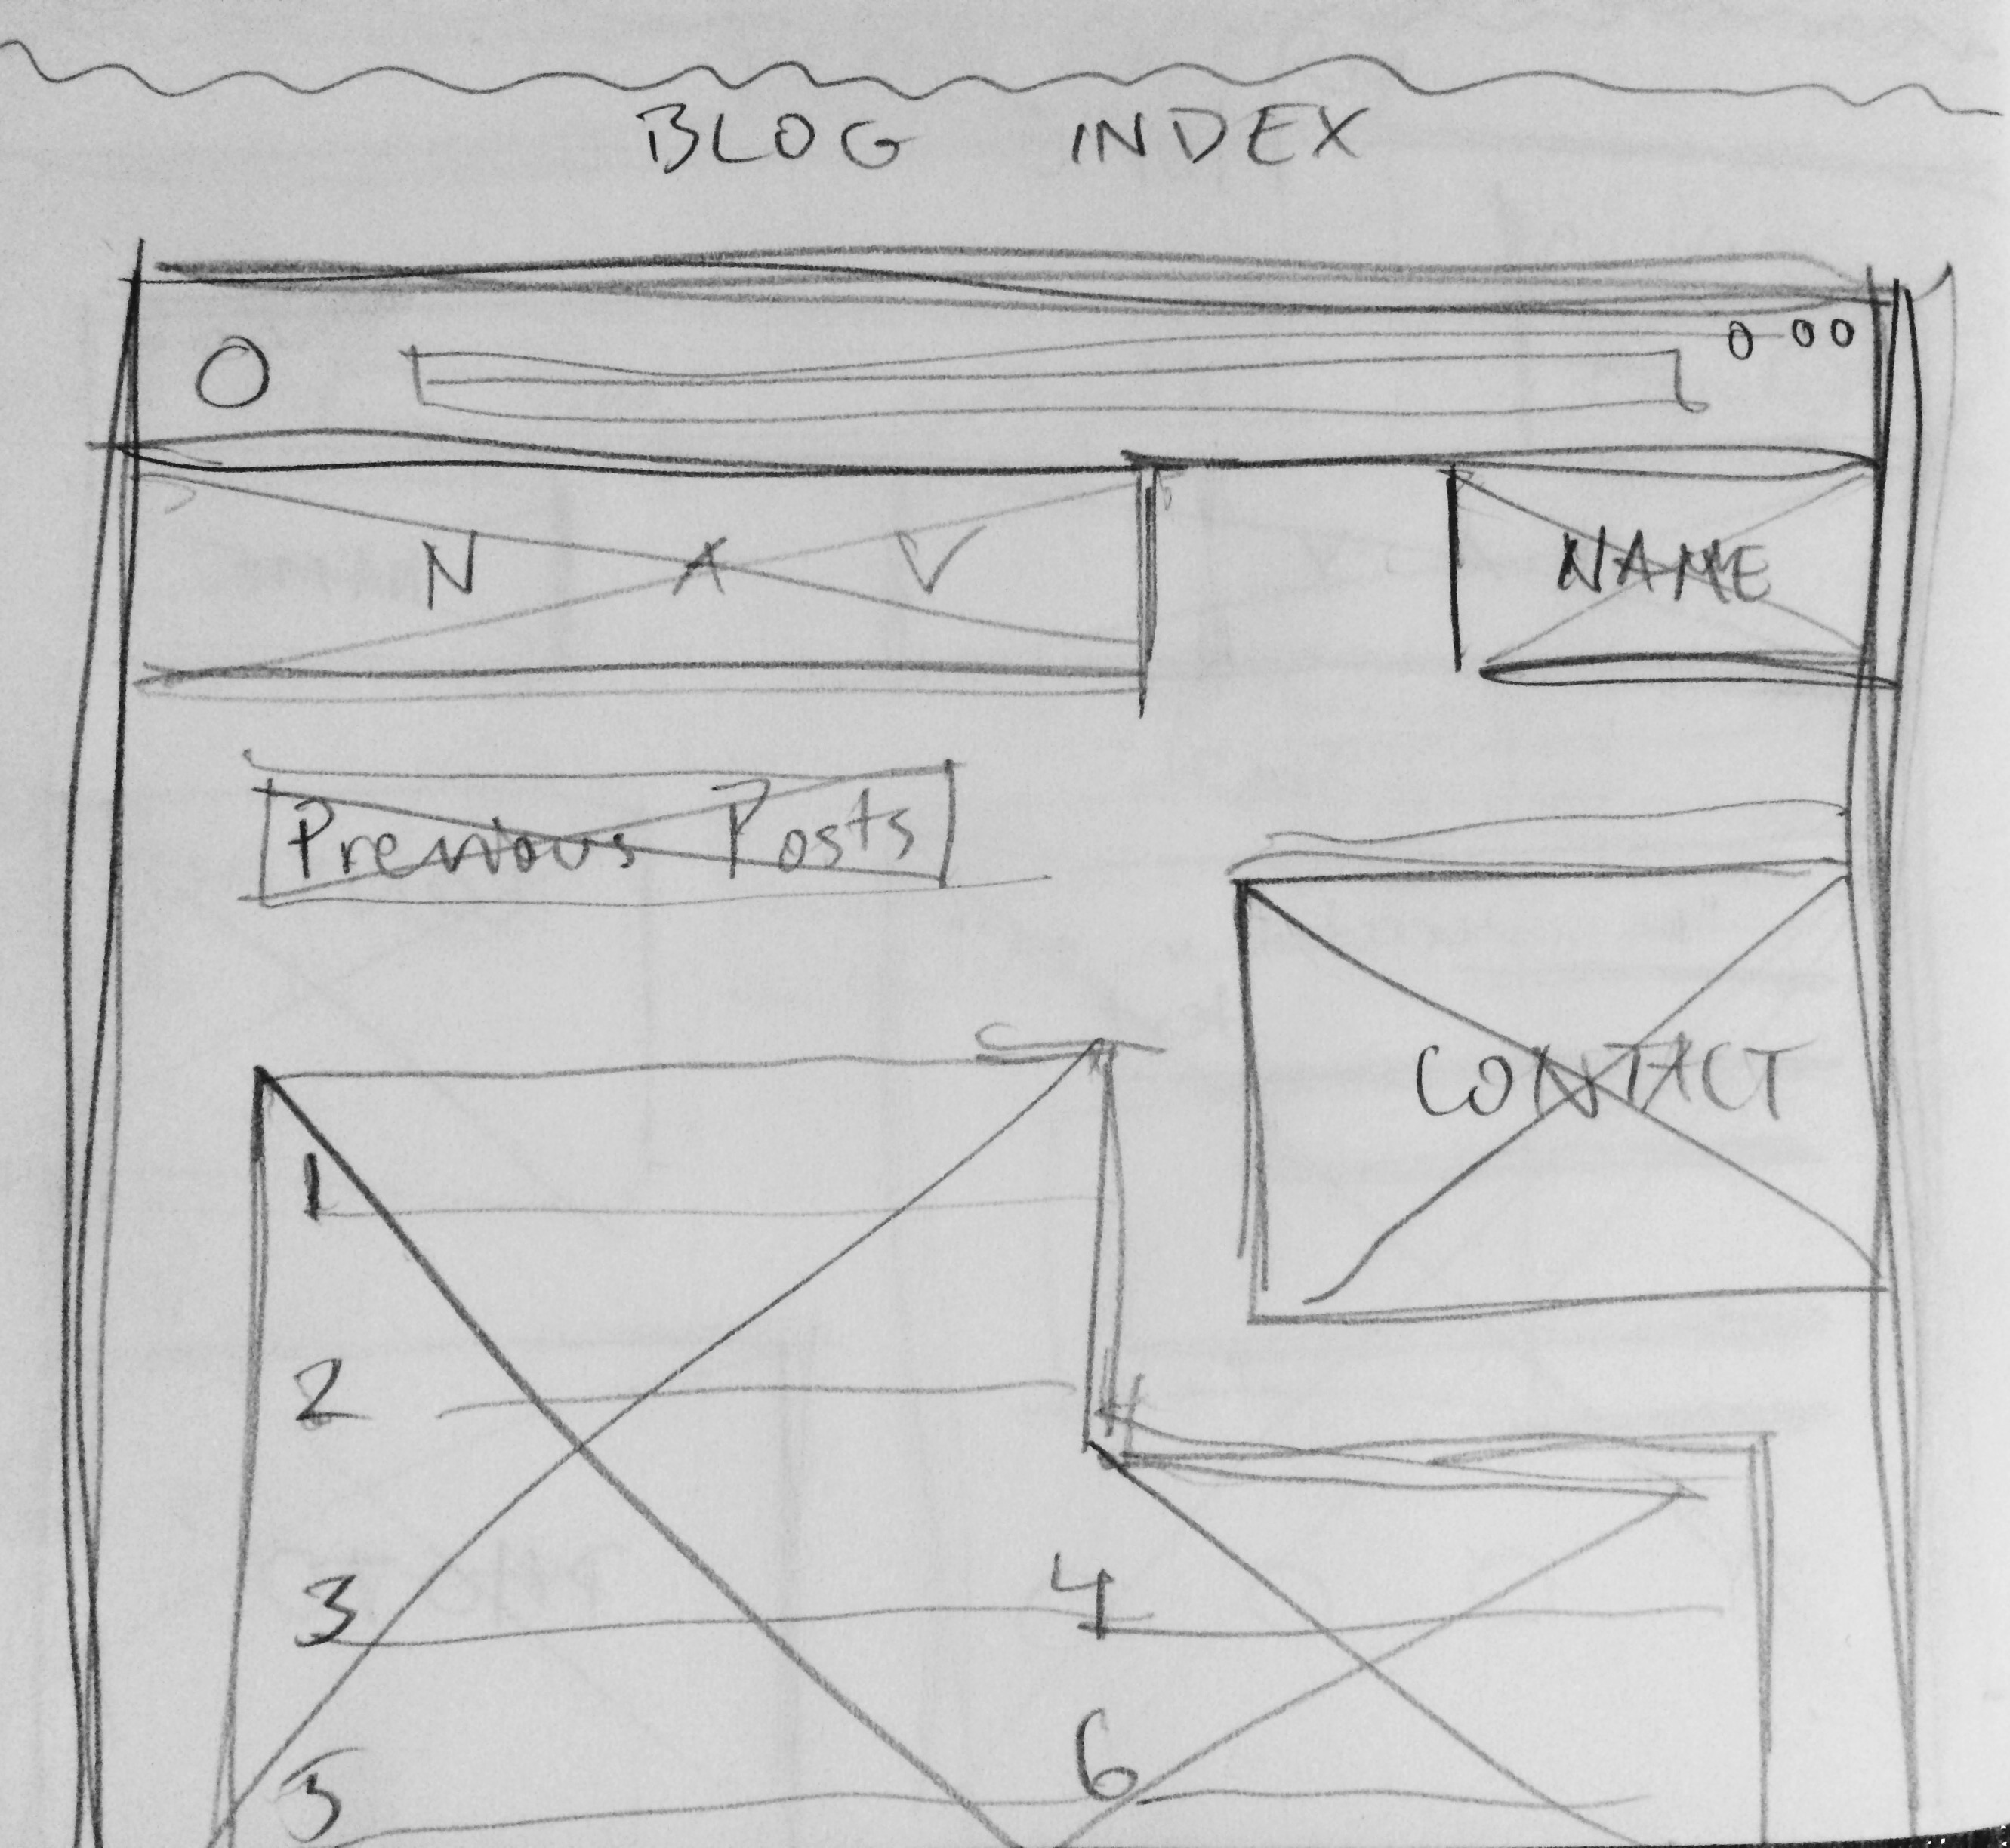 BLOG INDEX
NAV
NAME
Previous Posts
CONTACT
1
2
3
4
5
6